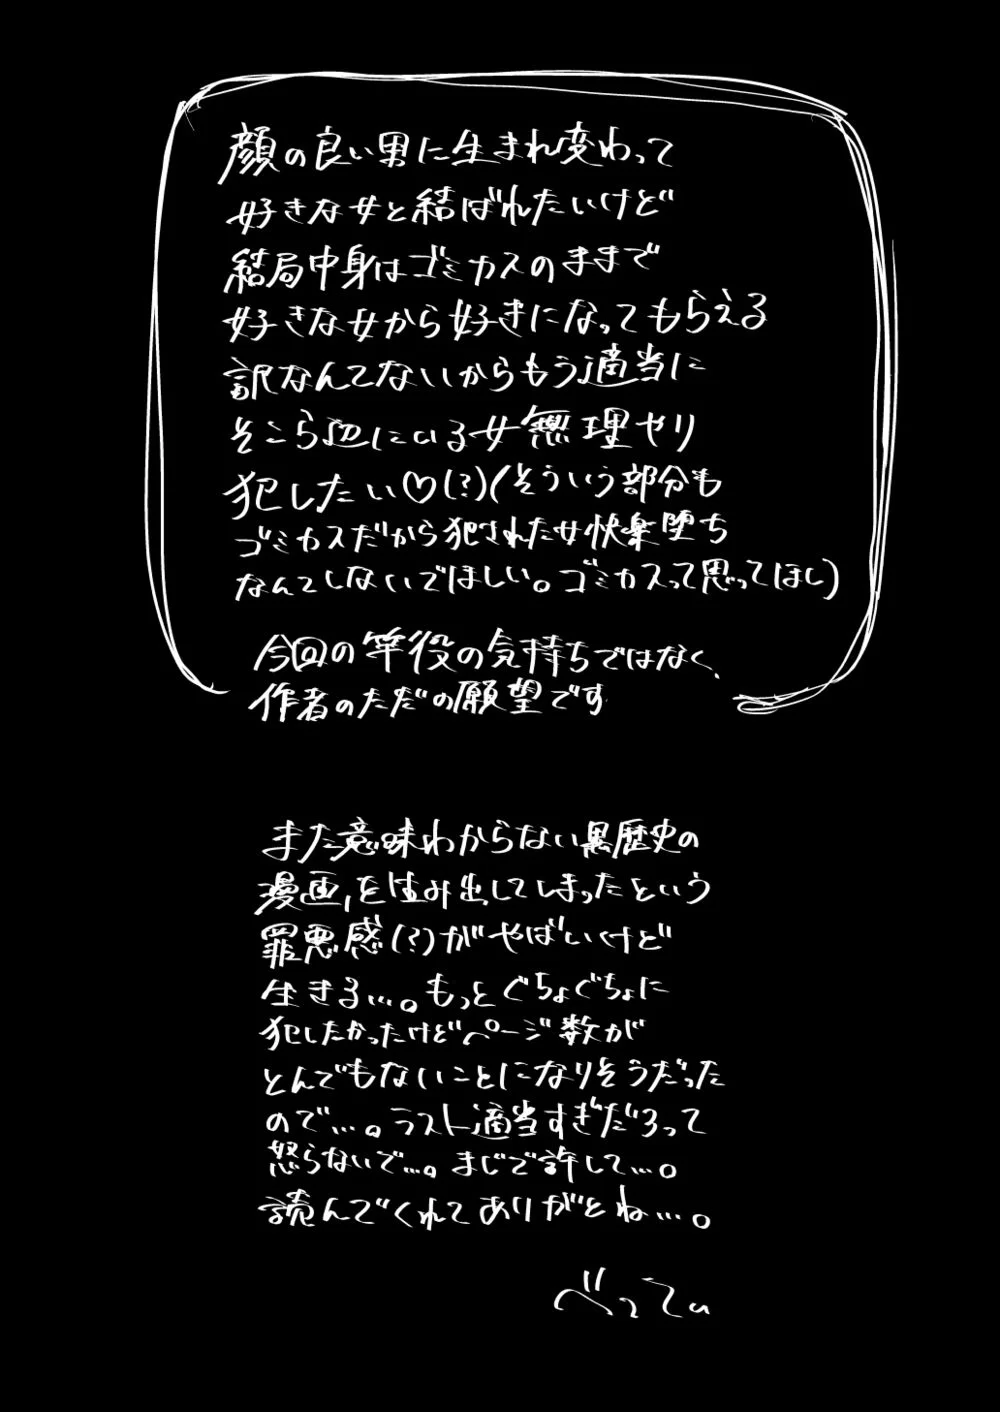 顔の良い男に生まれ変わって
好きな女と結ばれたいけど
結局中身はゴミカスのままで
好きな女から好きになってもらえる
訳なんてないからもう適当に
そこら辺にいる女無理やり
犯したい♡(?)(そういう部分も
ゴミカスだから犯された女快楽堕ち
なんてしないでほしい。ゴミカスって思ってほし)
今回の竿役の気持ちではなく、
作者のただの願望です
また意味わからない黒歴史の
漫画を生み出してしまったという
罪悪感(?)がやばいけど
生きる…。もっとぐちょぐちょに
犯したかったけどページ数が
とんでもないことになりそうだった
ので…。ラスト適当すぎだろって
怒らないで…。まじで許して…。
読んでくれてありがとね…。
べってぃ